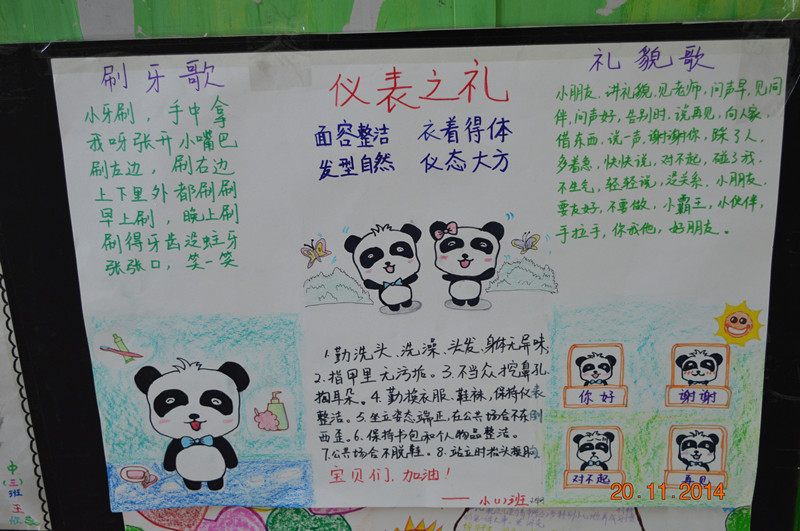 刷牙歌
小牙刷，手中拿
我呀张开小嘴巴
刷左边，刷右边
上下里外都刷刷
早上刷，晚上刷
刷得牙齿没蛀牙
张张口，笑一笑
仪表之礼
面容整洁 衣着得体
发型自然 仪态大方
1.勤洗头、洗澡、头发、身体无异味;
2.指甲里无污垢。3.不当众挖鼻孔
掏耳朵。4.勤换衣服、鞋袜，保持仪表
整洁。5.坐立姿态端正，在公共场合不东倒
西歪。6.保持书包和个人物品整洁。
7.公共场合不脱鞋。8.站立时抬头挺胸
宝贝们，加油！
——小(2)班
礼貌歌
小朋友，讲礼貌，见老师，问声早，见同
伴，问声好，告别时，说再见，向人家，
借东西，说一声，谢谢你，踩了人，
多着急，快快说，对不起，碰了我，
不生气，轻轻说，没关系，小朋友，
要友好，不要做，小霸王，小伙伴，
手拉手，你我他，好朋友。
你好
谢谢
对不起
再见
中(三)班 王
20.11.2014